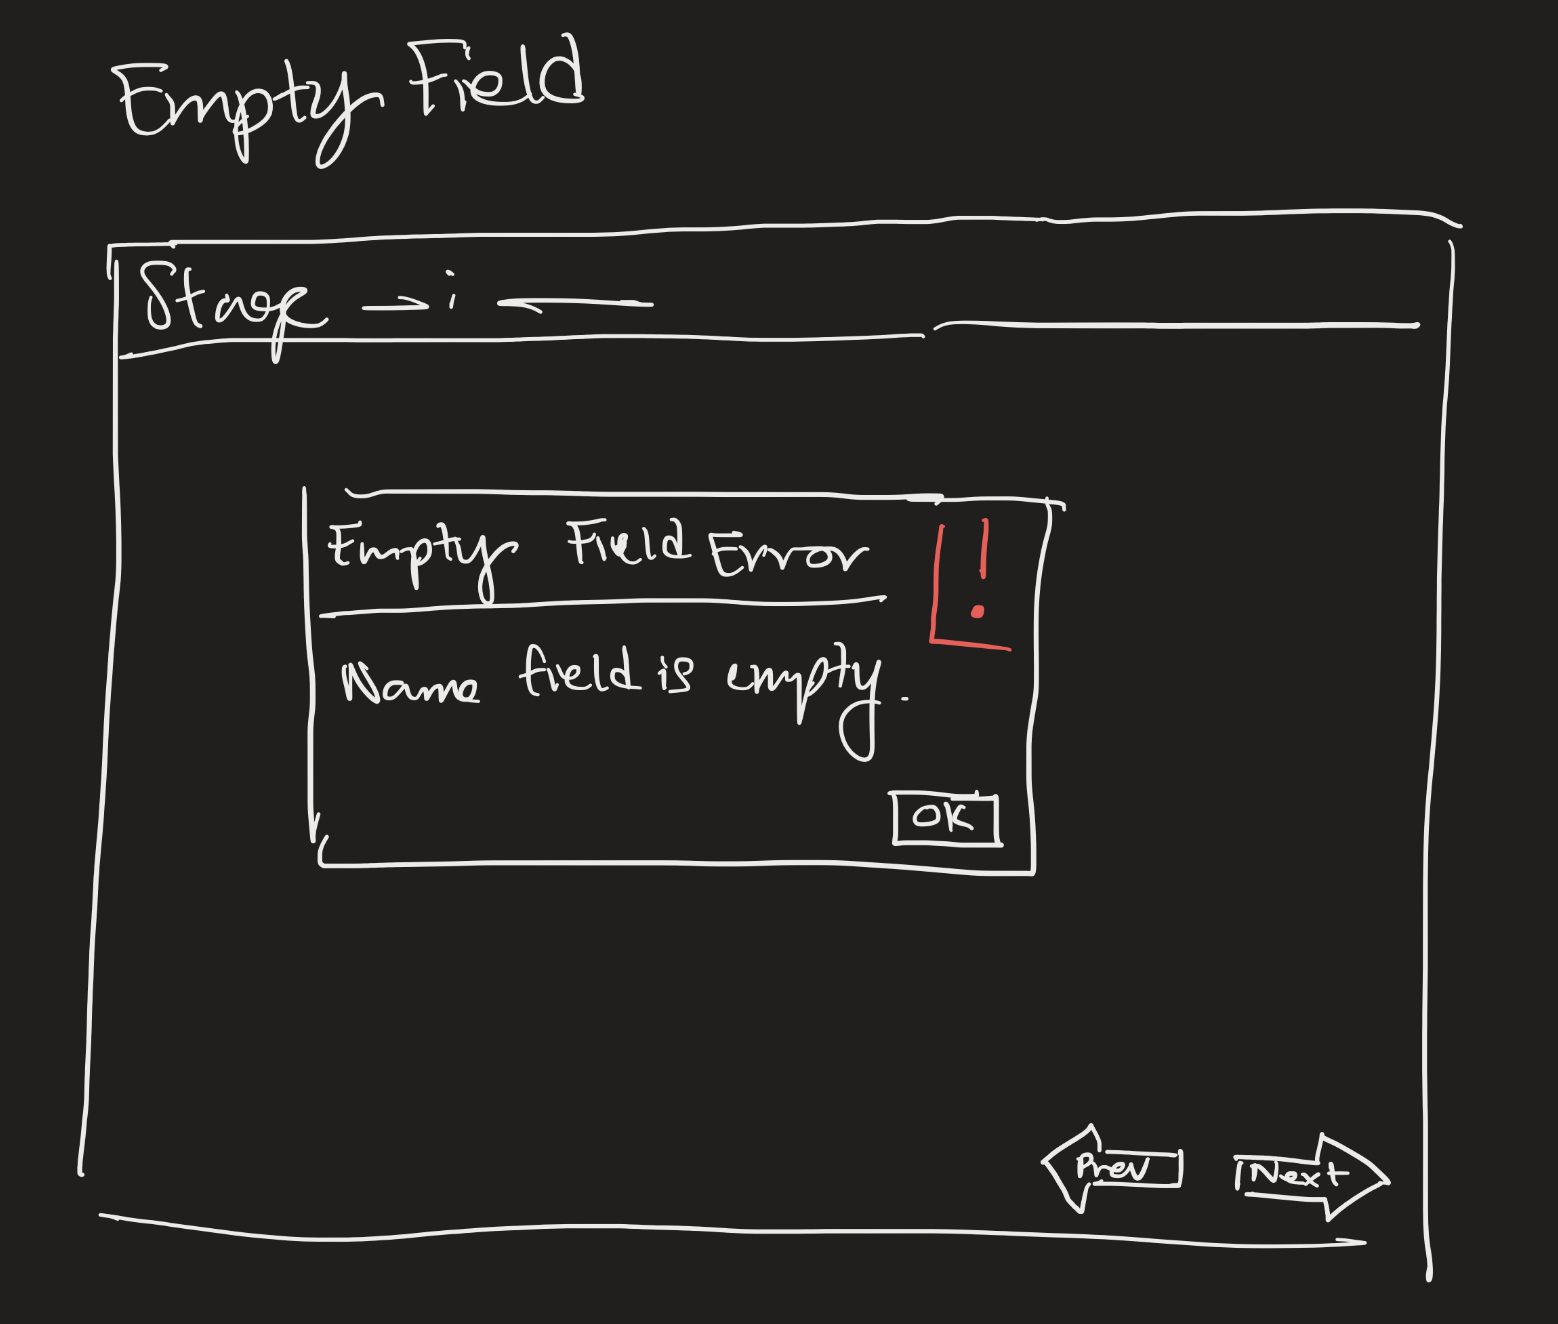 Empty Field
Stage → i ←
Empty Field Error !
Name field is empty.
OK
Prev Next